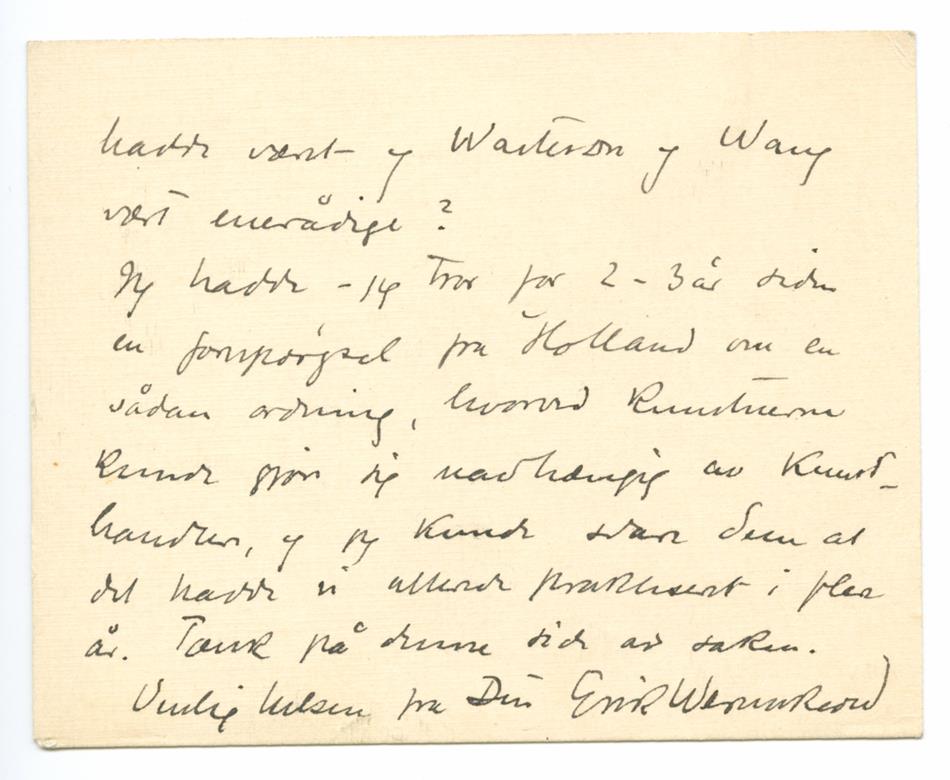 hadde været og Wasterson og Wang
vært enerådige?
Jeg hadde – jeg tror for 2–3 år siden
en forespørgsel fra Holland om en
sådan ordning, hvorved Kunstnerne
kunde gjøre sig uavhængig av Kunst-
handler, og jeg kunde svare dem at
det hadde vi allerede praktisert i flere
år. Tænk på denne side av saken.
Venlig hilsen fra Din Erik Werenskiold